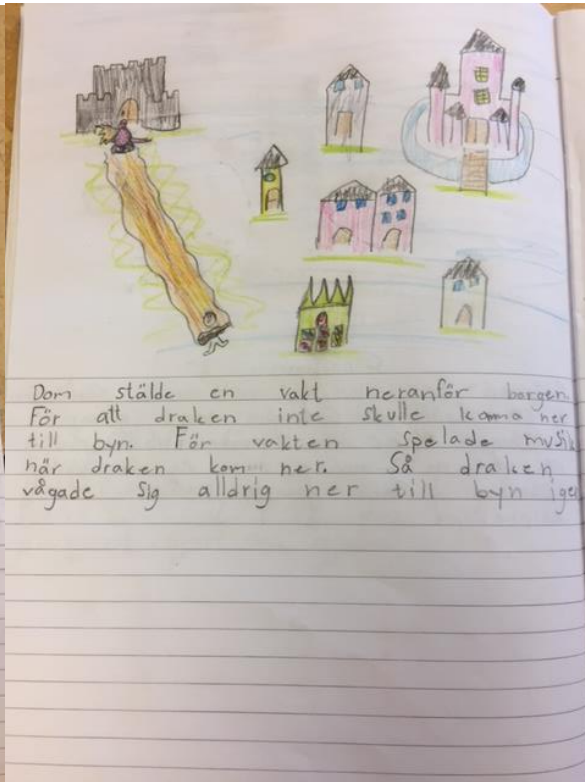 Dom stälde en vakt neranför borgen.
För att draken inte skulle komma ner
till byn. För vakten spelade musik
när draken kom ner. Så draken
vågade sig alldrig ner till byn igen